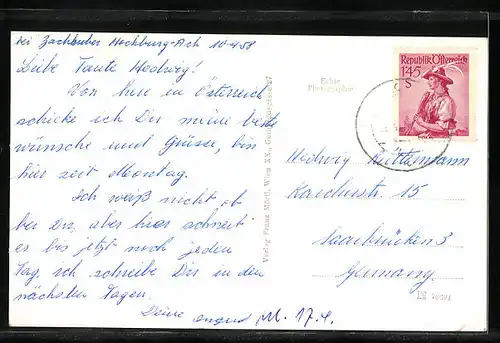 bei Zachbuber Hochburg-Ach 10-4-58
Liebe Tante Hedwig!
Von hier in Österreich
schicke ich Dir meine beste
wünsche und Grüsse, bin
hier seit Montag.
Ich weiß nicht ob
bei Dir, aber hier schneit
es bis jetzt noch jeden
Tag, ich schreibe Dir in den
nächsten Tagen.
Deine
M. 17.4.
Verlag Franz Mörtl, Wien XX.,
Echte
Photographie
Republik Österreich
1.45
S
Hedwig
15
Saarbrücken 3
Germany.